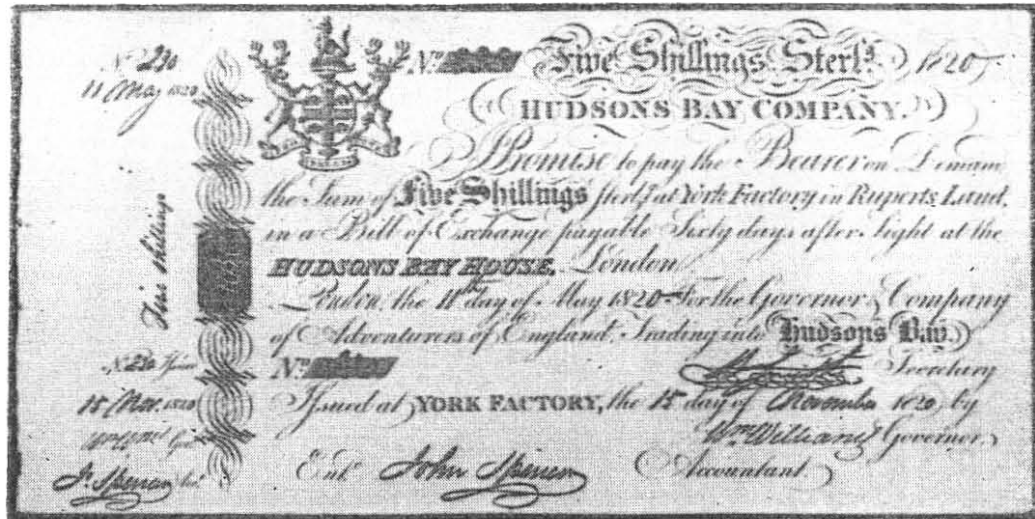 No. 230
11 May 1820
Five Shillings
No. 230
15 Nov. 1820
Jn. Spencer
No. Five Shillings Sterlg. 1820
HUDSONS BAY COMPANY.
I Promise to pay the Bearer on Demand
the Sum of Five Shillings sterlg. at York Factory in Ruperts Land,
in a Bill of Exchange payable Sixty days after Sight at the
HUDSONS BAY HOUSE, London
London, the 11th day of May 1820 For the Governor & Company
of Adventurers of England, Trading into Hudsons Bay.
No. Secretary
Issued at YORK FACTORY, the 15 day of November 1820 by
Wm. Williams Governor.
Entd. John Spencer Accountant.